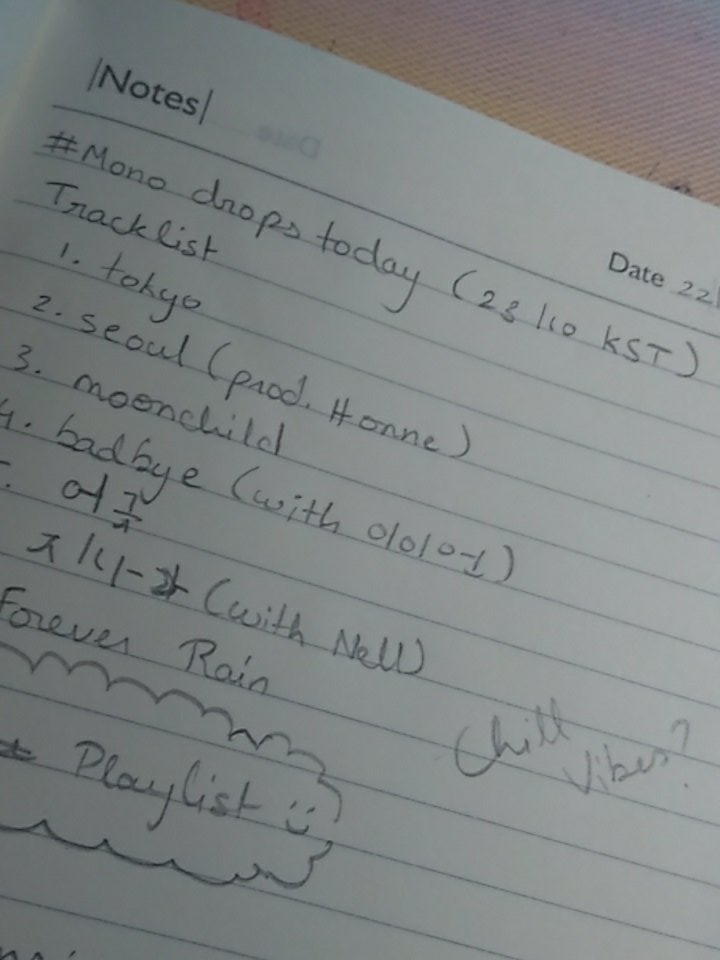 |Notes|
Date 22
#Mono drops today (23/10 KST)
Tracklist
1. tokyo
2. seoul (prod. Honne)
3. moonchild
4. badbye (with 이이언)
어긋
지나가 (with Nell)
Forever Rain
Chill
vibes?
Playlist :)